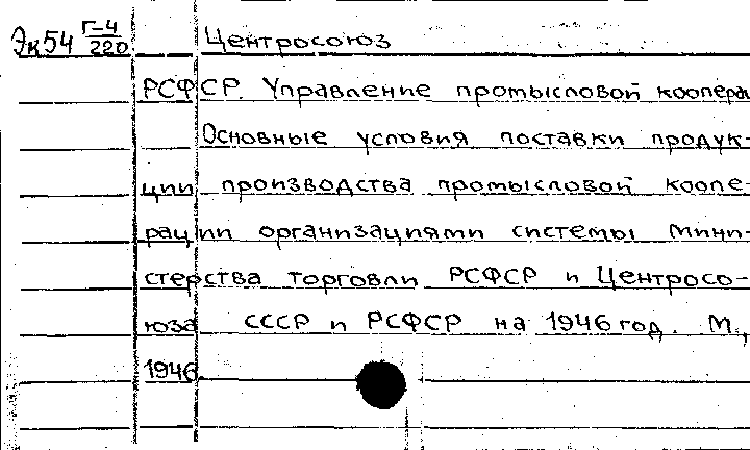 Эк54 Г-4/220 Центросоюз
РСФСР. Управление промысловой коопера
Основные условия поставки продук-
ции производства промысловой коопе-
рации организациями системы мини-
стерства торговли РСФСР и Центросо-
юза СССР и РСФСР на 1946 год. М.,
1946